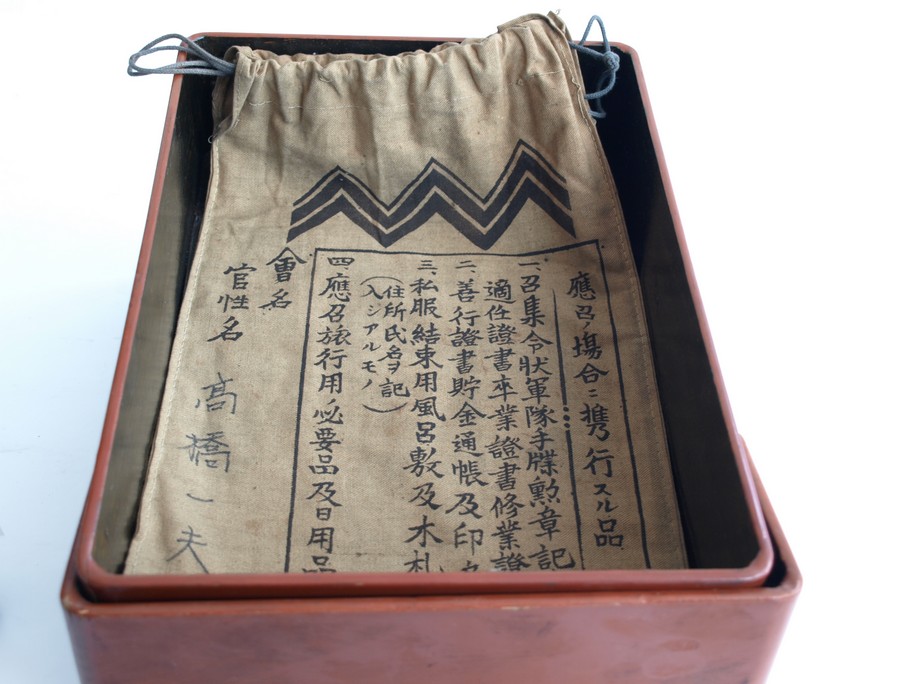 應召ノ場合ニ携行スル品
一、召集令狀軍隊手牒勲章記
適任證書卒業證書修業證
二、善行證書貯金通帳及印
三、私服結束用風呂敷及木札
（住所氏名ヲ記
入シアルモノ）
四、應召旅行用ノ必要品及日用品
會名
官性名
高橋一夫